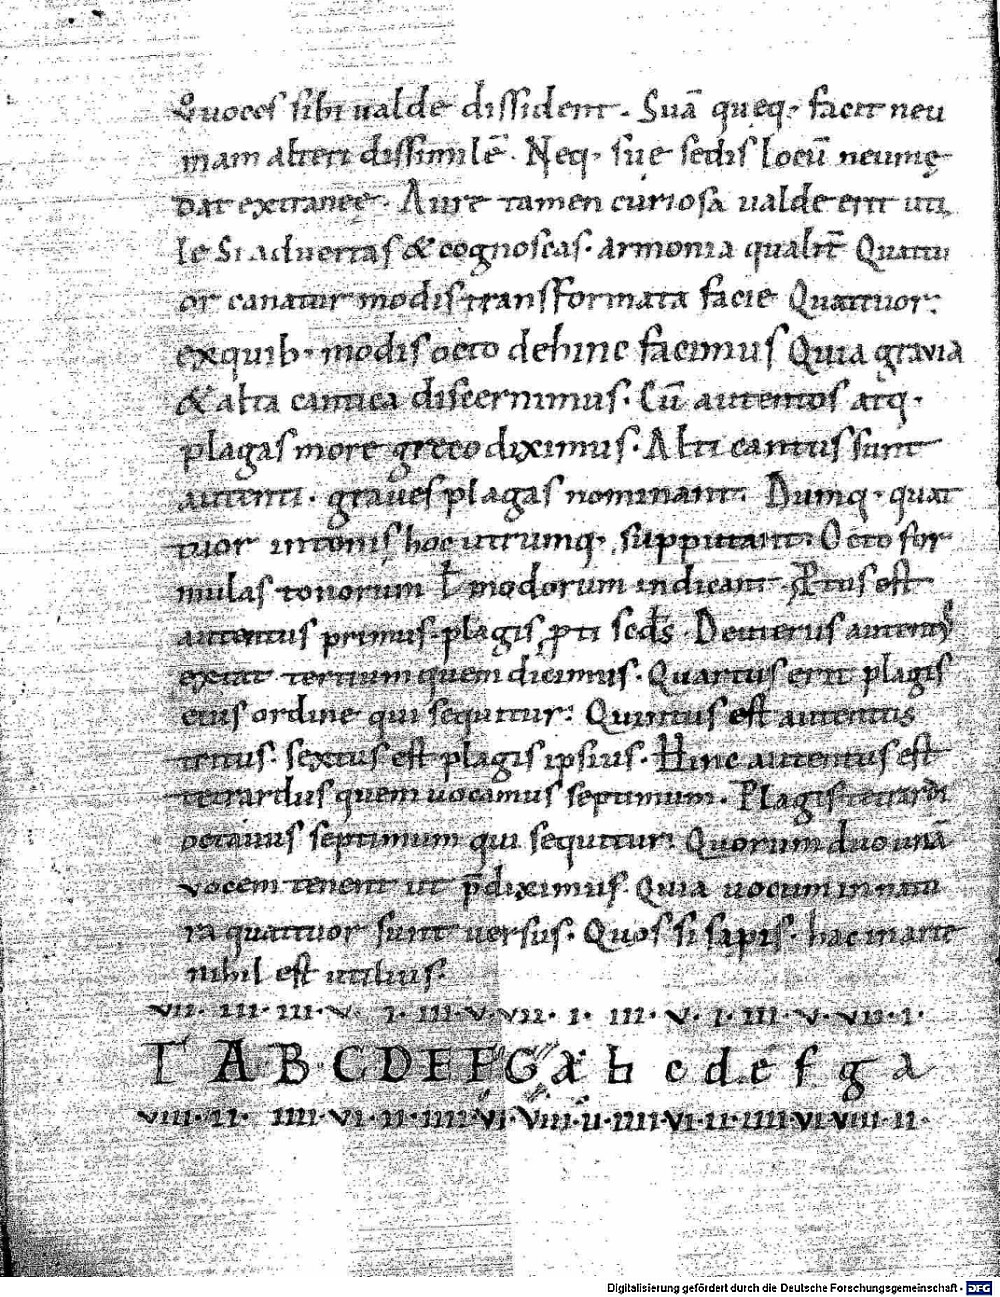 & uoces sibi ualde dissident. Suā queq; facit neu
mam alteri dissimilē. Neq; sue sedis locū neumę
dat extraneę. Aure tamen curiosa ualde erit uti
le Si aduertas & cognoscas. armonia qualit̄ Quattu
or canatur modis transformata facie Quattuor;
ex quib; modis octo dehinc facimus Quia gravia
& alta cantica discernimus. Cū autentos atq;
plagas more greco diximus. Alti cantus sunt
autenti. graues plagas nominant. Dumq; quat
tuor in tonis hoc utrumq; supputant. Octo for
mulas tonorum ł modorum indicant. Ꝓtus est
autentus primus. plagis ꝓti scds. Deuterus autent;
extat tertium quem dicimus. Quartus erit plagis
eius ordine qui sequitur. Quintus est autentus
tritus. sextus est plagis ipsius. Hinc autentus est
tetrardus quem uocamus septimum. Plagis tetardi
octauus septimum qui sequitur. Quorum duo unā
vocem tenent ut p̄diximus. Quia uocum in natu
ra quattuor sunt uersus. Quos si sapis. hac in arte
nihil est utilius.
vii. iii. iii. v. i. iii. v. vii. i. iii. v. i. iii. v. vii. i.
Γ A B C D E F G a b c d e f g a
viii. ii. iiii. vi. ii. iiii. vi. viii. ii. iiii. vi. ii. iiii. vi. viii. ii.
Digitalisierung gefördert durch die Deutsche Forschungsgemeinschaft - DFG